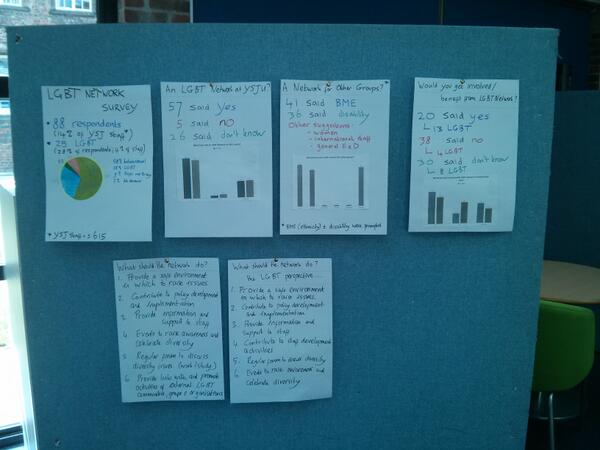 LGBT NETWORK
SURVEY
* 88 respondents
(14% of YSJ staff*)
* 25 LGBT
(28% of respondents, 4% of staff)
* YSJ staff = 615
An LGBT Network at YSJU?
57 said yes
5 said no
26 said don't know
A Network for Other Groups?*
41 said BME
36 said disability
Other suggestions:
- women
- international staff
- general E&D
* BME (ethnicity) & disability were prompted
Would you get involved/
benefit from LGBT Network?
20 said yes
13 LGBT
38 said no
4 LGBT
30 said don't know
8 LGBT
What should the network do?
1. Provide a safe environment
in which to raise issues
2. Contribute to policy development
and implementation
3. Provide information and
support to staff
4. Events to raise awareness and
celebrate diversity
5. Regular forum to discuss
diversity issues (work/study)
6. Provide links with, and promote
activities of external LGBT
communities, groups & organisations
What should the network do?
the LGBT perspective...
1. Provide a safe environment
in which to raise issues
2. Contribute to policy development
and implementation
3. Provide information and
support to staff
4. Contribute to staff development
activities
5. Regular forum to discuss diversity
6. Events to raise awareness and
celebrate diversity